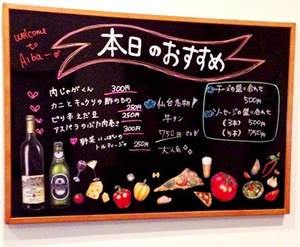 welcome
to
Aiba
本日のおすすめ
肉じゃがくん 300円
カニとキュウリの酢のもの 250円
ピリ辛えだ豆 250円
アスパラのぶた肉巻き 300円
野菜いっぱいの
トルティーヤ 250円
仙台名物
牛タン
750円
大人気
チーズの盛り合わせ
500円
ソーセージの盛り合わせ
(3本) 500円
(5本) 750円